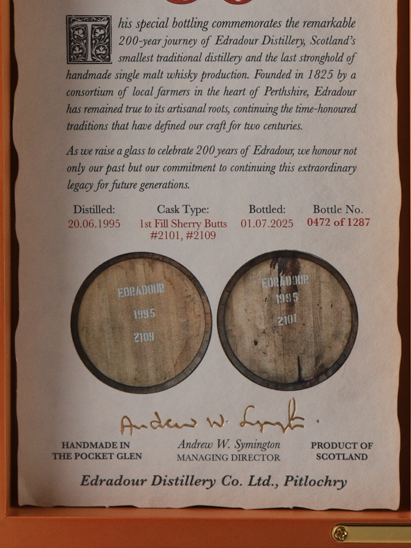 This special bottling commemorates the remarkable
200-year journey of Edradour Distillery, Scotland's
smallest traditional distillery and the last stronghold of
handmade single malt whisky production. Founded in 1825 by a
consortium of local farmers in the heart of Perthshire, Edradour
has remained true to its artisanal roots, continuing the time-honoured
traditions that have defined our craft for two centuries.
As we raise a glass to celebrate 200 years of Edradour, we honour not
only our past but our commitment to continuing this extraordinary
legacy for future generations.
Distilled: Cask Type: Bottled: Bottle No.
20.06.1995 1st Fill Sherry Butts 01.07.2025 0472 of 1287
#2101, #2109
EDRADOUR EDRADOUR
1995 1995
2109 2101
Andrew W. Symington
HANDMADE IN Andrew W. Symington PRODUCT OF
THE POCKET GLEN MANAGING DIRECTOR SCOTLAND
Edradour Distillery Co. Ltd., Pitlochry